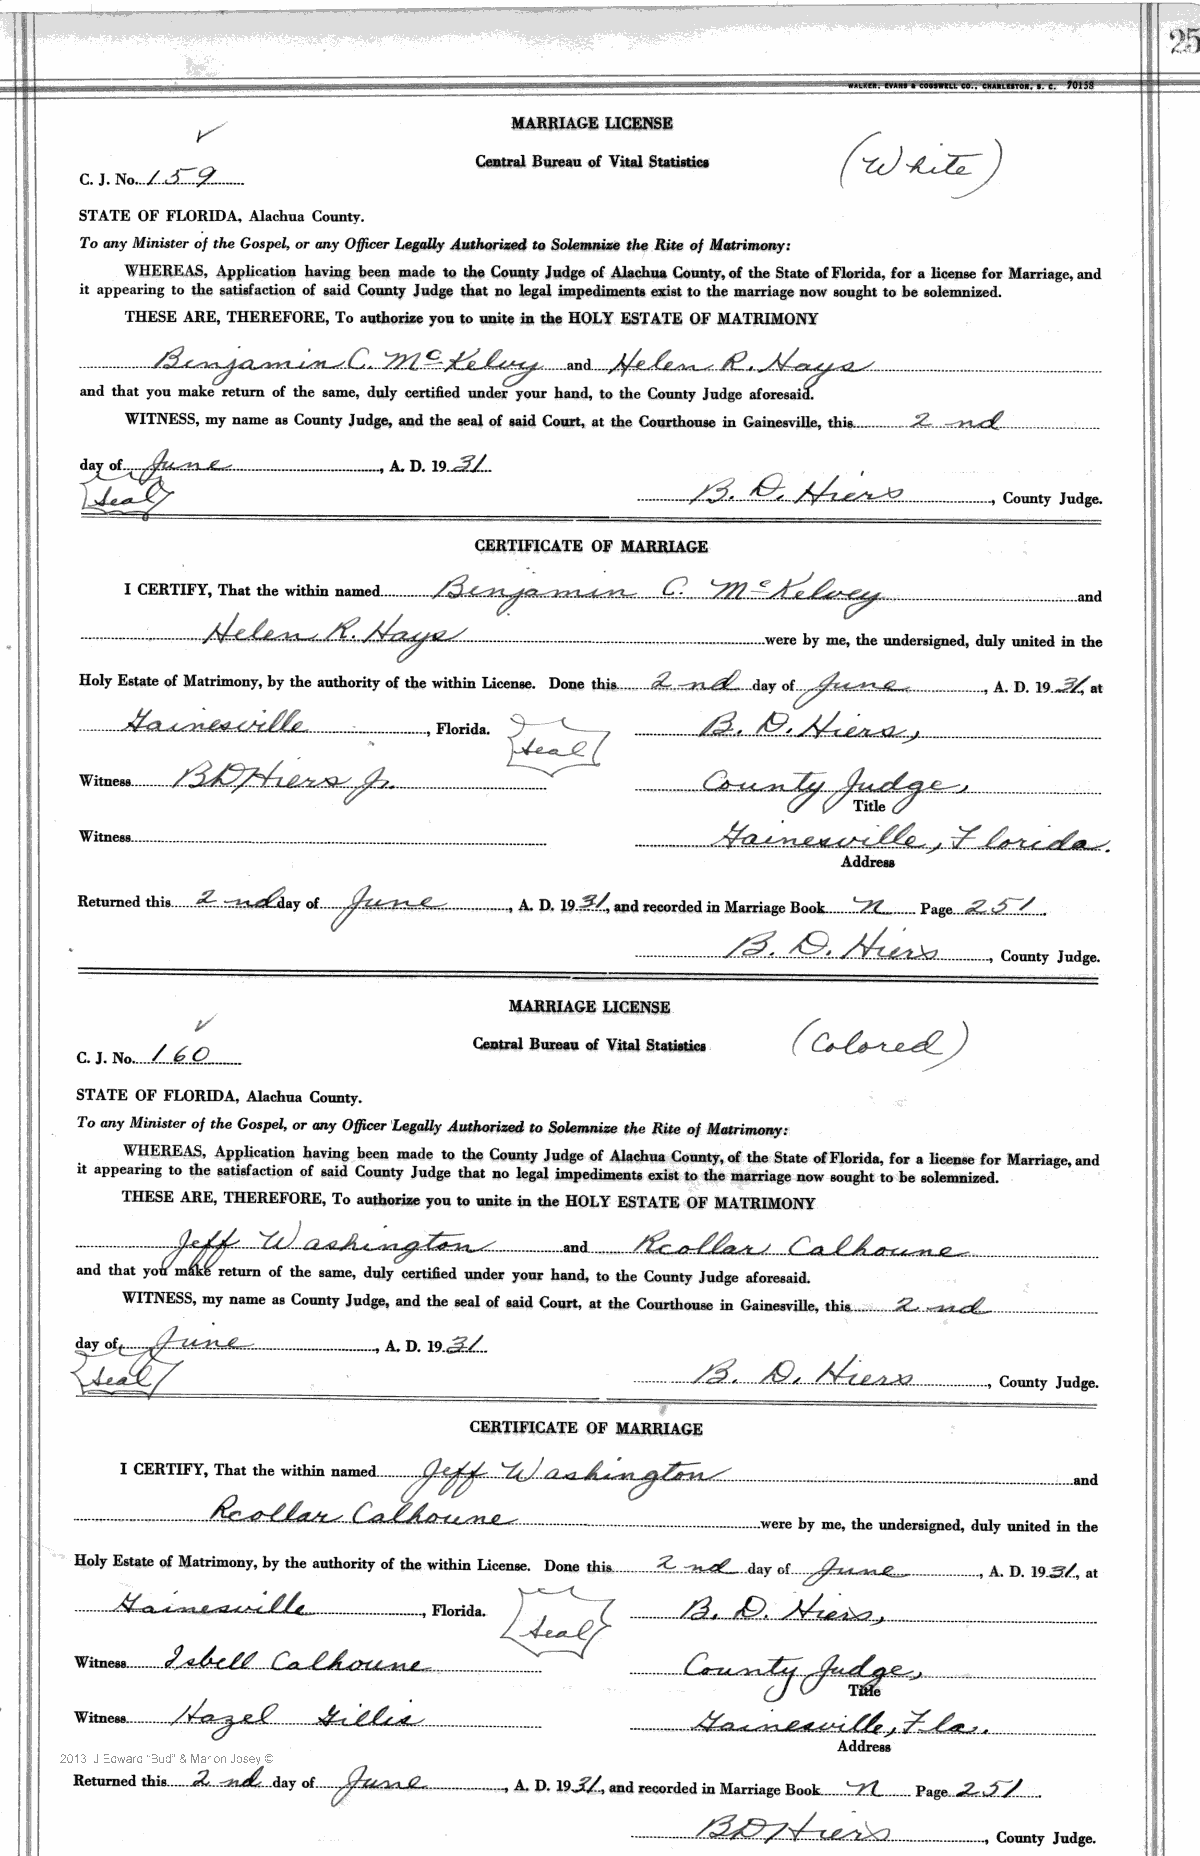 25
WALKER, EVANS & COGSWELL CO., CHARLESTON, S. C. 70158
MARRIAGE LICENSE
Central Bureau of Vital Statistics
(White)
C. J. No. 159
STATE OF FLORIDA, Alachua County.
To any Minister of the Gospel, or any Officer Legally Authorized to Solemnize the Rite of Matrimony:
WHEREAS, Application having been made to the County Judge of Alachua County, of the State of Florida, for a license for Marriage, and
it appearing to the satisfaction of said County Judge that no legal impediments exist to the marriage now sought to be solemnized.
THESE ARE, THEREFORE, To authorize you to unite in the HOLY ESTATE OF MATRIMONY
Benjamin C. McKelvy and Helen R. Hays
and that you make return of the same, duly certified under your hand, to the County Judge aforesaid.
WITNESS, my name as County Judge, and the seal of said Court, at the Courthouse in Gainesville, this 2nd
day of June, A. D. 1931
Seal
B. D. Hiers, County Judge.
CERTIFICATE OF MARRIAGE
I CERTIFY, That the within named Benjamin C. McKelvey and
Helen R. Hays were by me, the undersigned, duly united in the
Holy Estate of Matrimony, by the authority of the within License. Done this 2nd day of June, A. D. 1931, at
Gainesville, Florida. Seal B. D. Hiers,
Witness BD Hiers Jr. County Judge,
Title
Witness Gainesville, Florida.
Address
Returned this 2nd day of June, A. D. 1931, and recorded in Marriage Book N Page 251.
B. D. Hiers, County Judge.
MARRIAGE LICENSE
Central Bureau of Vital Statistics
(Colored)
C. J. No. 160
STATE OF FLORIDA, Alachua County.
To any Minister of the Gospel, or any Officer Legally Authorized to Solemnize the Rite of Matrimony:
WHEREAS, Application having been made to the County Judge of Alachua County, of the State of Florida, for a license for Marriage, and
it appearing to the satisfaction of said County Judge that no legal impediments exist to the marriage now sought to be solemnized.
THESE ARE, THEREFORE, To authorize you to unite in the HOLY ESTATE OF MATRIMONY
Jeff Washington and Rcollar Calhoune
and that you make return of the same, duly certified under your hand, to the County Judge aforesaid.
WITNESS, my name as County Judge, and the seal of said Court, at the Courthouse in Gainesville, this 2nd
day of June, A. D. 1931
Seal
B. D. Hiers, County Judge.
CERTIFICATE OF MARRIAGE
I CERTIFY, That the within named Jeff Washington and
Rcollar Calhoune were by me, the undersigned, duly united in the
Holy Estate of Matrimony, by the authority of the within License. Done this 2nd day of June, A. D. 1931, at
Gainesville, Florida. Seal B. D. Hiers,
Witness Isbell Calhoune County Judge,
Title
Witness Hazel Gillis Gainesville, Fla.
Address
2013 J Edward "Bud" & Marion Josey ©
Returned this 2nd day of June, A. D. 1931, and recorded in Marriage Book N Page 251.
BD Hiers, County Judge.